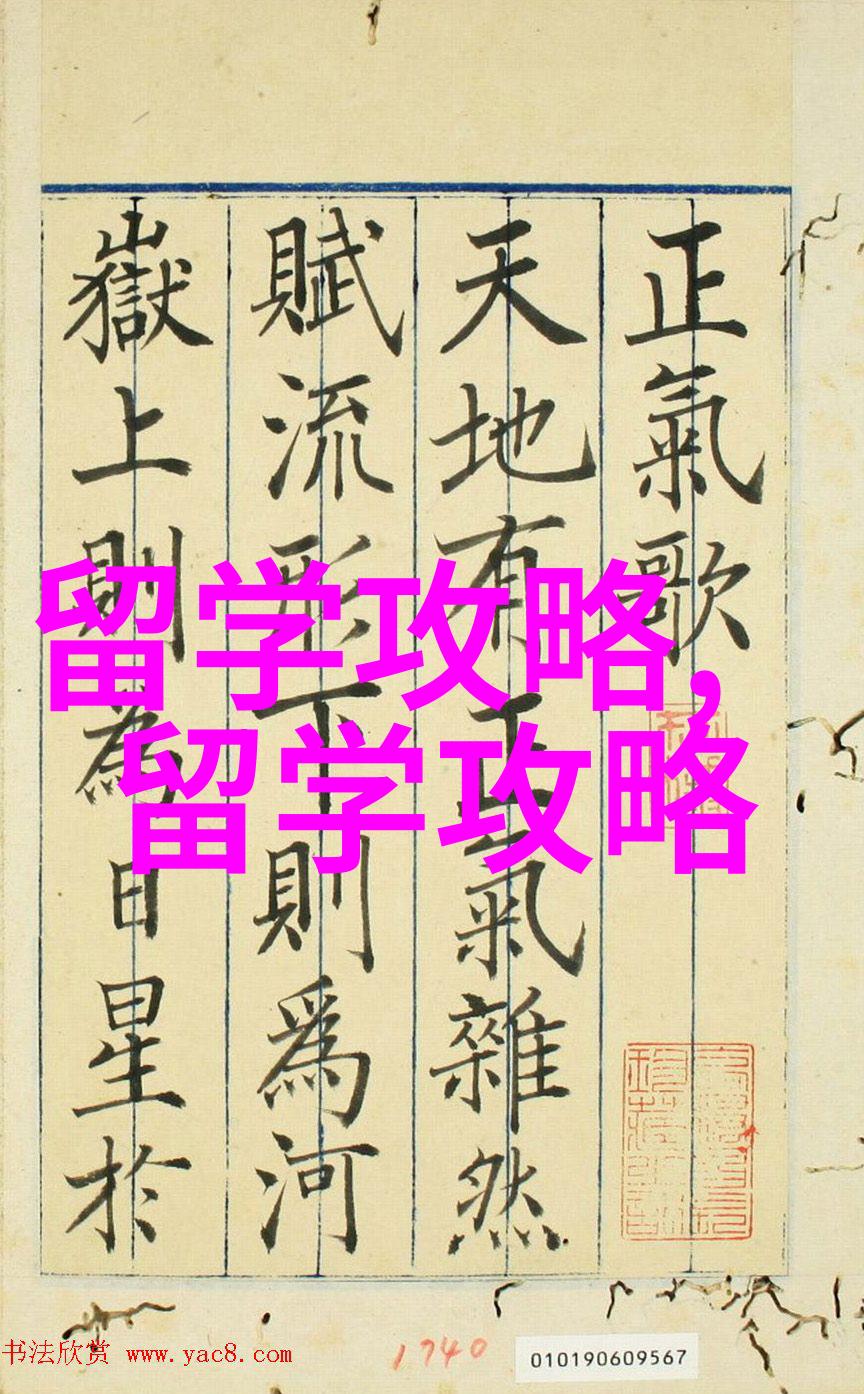 正氣歌
天地有正氣雜然
賦流形下則爲河
嶽上則為日星於
留学攻略,
留学攻略
书法欣赏 www.yac8.com
1740
010190609567